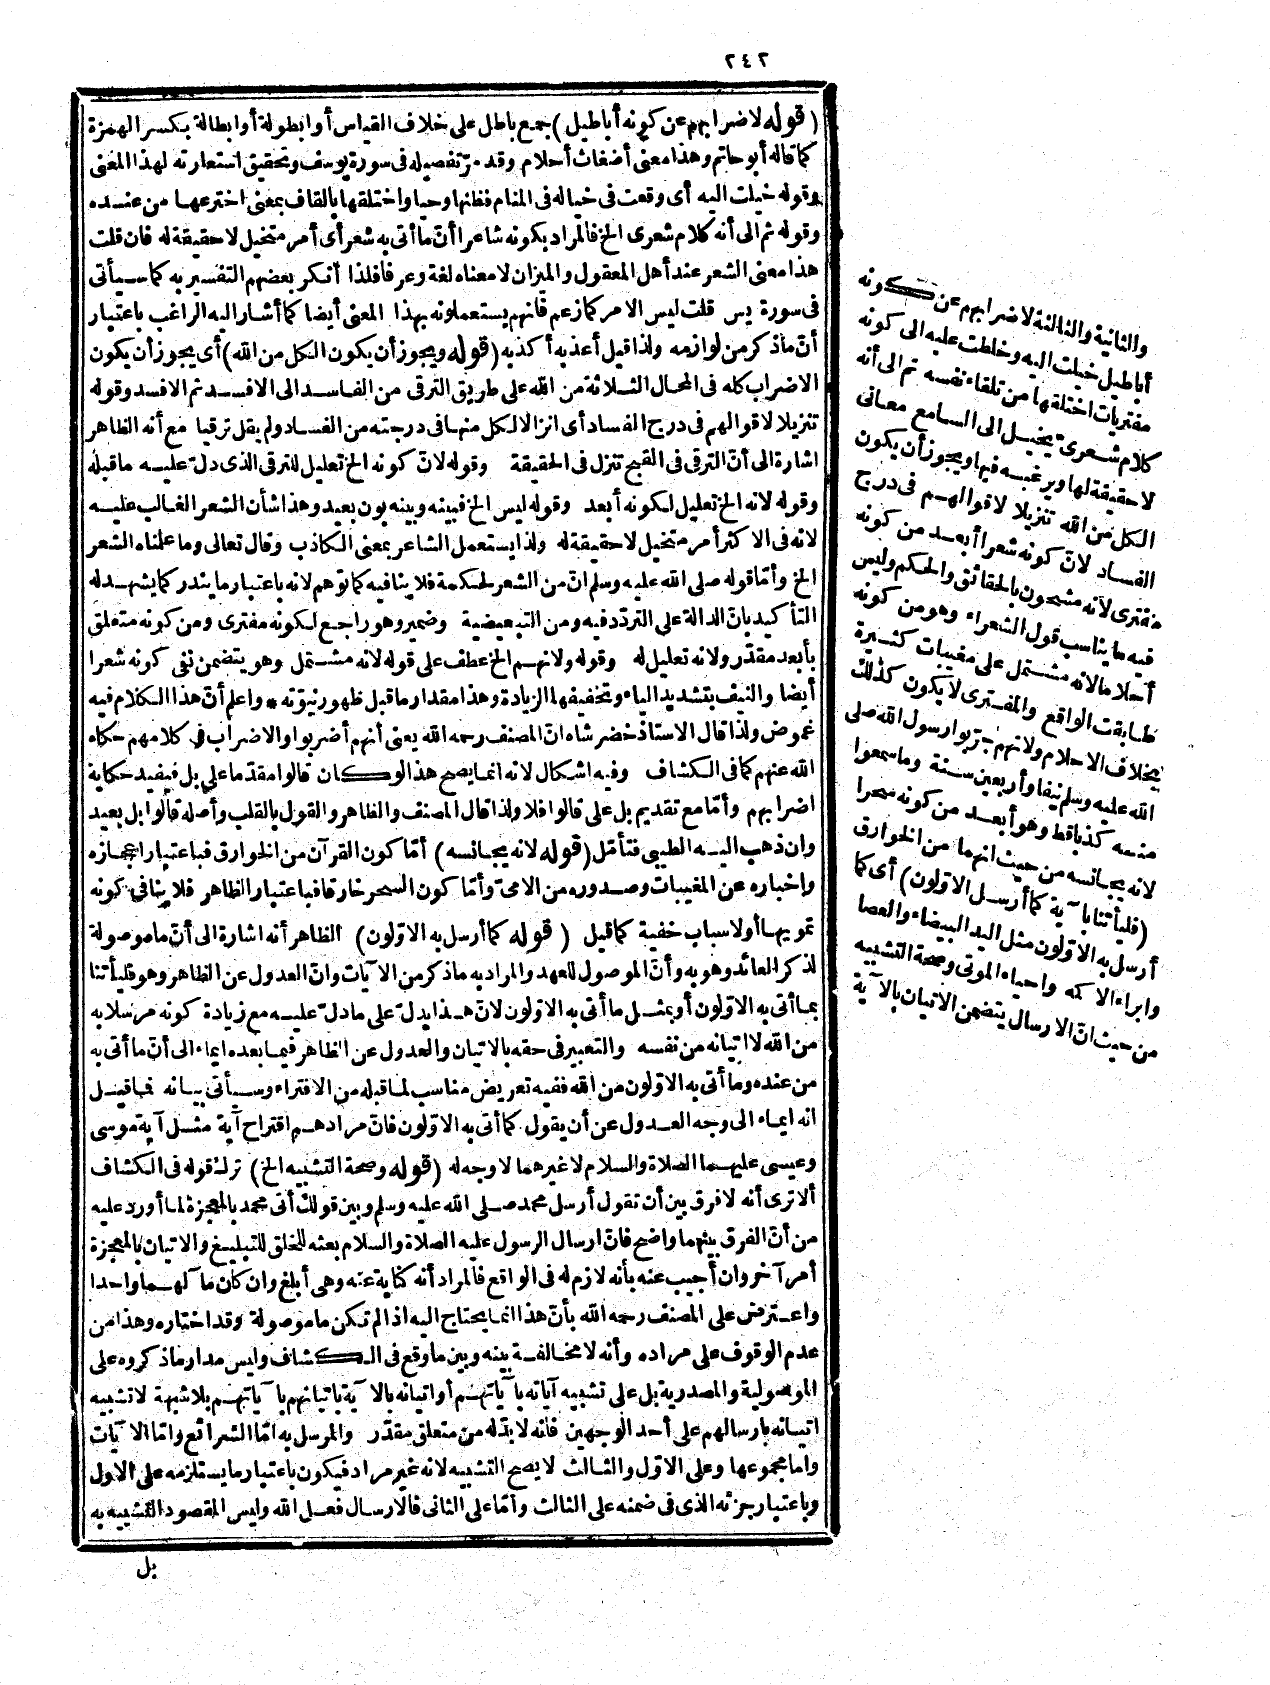 ٢٤٢
(قوله لاضرابهم عن كونه أباطيل) جمع باطل على خلاف القياس أو ابطولة أو ابطالة بكسر الهمزة
كما قاله أبو حاتم وهذا معنى أضغاث أحلام وقد مرّ تفصيله فى سورة يوسف وتحقيق استعارته لهذا المعنى
وقوله خيلت اليه أى وقعت فى خياله فى المنام فظنها وحيا واختلقها بالقاف بمعنى اخترعها من عنده
وقوله ثم الى أنه كلام شعرى الخ فالمراد بكونه شاعرا أنّ ما أتى به شعر أى أمر متخيل لا حقيقة له فان قلت
هذا معنى الشعر عند أهل المعقول والميزان لا معناه لغة وعرفا فلذا أنكر بعضهم التفسير به كما سيأتى
فى سورة يس قلت ليس الامر كما زعم فانهم يستعملونه بهذا المعنى أيضا كما أشار اليه الراغب باعتبار
أنّ ما ذكر من لوازمه ولذا قيل أعذبه أكذبه (قوله ويجوز أن يكون الكل من الله) أى يجوز أن يكون
الاضراب كله فى المحال الثلاثة من الله على طريق الترقى من الفاسد الى الافسد ثم الافسد وقوله
تنزيلا لاقوالهم فى درج الفساد أى انزالا لكل منها فى درجته من الفساد ولم يقل ترقيا مع أنه الظاهر
اشارة الى أنّ الترقى فى القبح تنزل فى الحقيقة وقوله لانّ كونه الخ تعليل للترقى الذى دلّ عليه ما قبله
وقوله لانه الخ تعليل لكونه أبعد وقوله ليس الخ فبينه وبينه بون بعيد وهذا شأن الشعر الغالب عليه
لانه فى الاكثر أمر متخيل لا حقيقة له ولذا يستعمل الشاعر بمعنى الكاذب وقال تعالى وما علمناه الشعر
الخ وأمّا قوله صلى الله عليه وسلم انّ من الشعر لحكمة فلا ينافيه كما توهم لانه باعتبار ما يندر كما يشهد له
التأكيد بانّ الدالة على التردّد فيه ومن التبعيضية وضمير وهو راجع لكونه مفترى ومن كونه متعلق
بأبعد مقدّر ولانه تعليل له وقوله ولانهم الخ عطف على قوله لانه مشتمل وهو يتضمن نفى كونه شعرا
أيضا والنيف بتشديد الياء وتخفيفها الزيادة وهذا مقدار ما قبل ظهور نبوّته * واعلم أنّ هذا الكلام فيه
غموض ولذا قال الاستاذ خضر شاه انّ المصنف رحمه الله يعنى أنهم أضربوا والاضراب فى كلامهم حكاه
الله عنهم كما فى الكشاف وفيه اشكال لانه انما يصح هذا لو كان قالوا مقدّما على بل فيفيد حكاية
اضرابهم وأمّا مع تقديم بل على قالوا فلا ولذا قال المصنف والظاهر والقول بالقلب وأصله قالوا بل بعيد
وان ذهب اليه الطيبى فتأمّل (قوله لانه يجانسه) أمّا كون القرآن من الخوارق فباعتبار اعجازه
واخباره عن المغيبات وصدوره من الامىّ وأمّا كون السحر خارقا فباعتبار الظاهر فلا ينافى كونه
تمويها أولاسباب خفية كما قيل (قوله كما أرسل به الاوّلون) الظاهر أنه اشارة الى أنّ ما موصولة
لذكر العائد وهو به وأنّ الموصول للعهد والمراد به ما ذكر من الآيات وانّ العدول عن الظاهر وهو فليأتنا
بما أتى به الاوّلون أو بمثل ما أتى به الاوّلون لانّ هذا يدلّ على ما دلّ عليه مع زيادة كونه مرسلا به
من الله لا اتيانه من نفسه والتعبير فى حقه بالاتيان والعدول عن الظاهر فيما بعده ايماء الى أنّ ما أتى به
من عنده وما أتى به الاوّلون من الله ففيه تعريض مناسب لما قبله من الافتراء وسيأتى بيانه فما قيل
انه ايماء الى وجه العدول عن أن يقول كما أتى به الاوّلون فانّ مرادهم اقتراح آية مثل آية موسى
وعيسى عليهما الصلاة والسلام لا غيرهما لا وجه له (قوله وصحة التشبيه الخ) ترك قوله فى الكشاف
ألا ترى أنه لا فرق بين أن تقول أرسل محمد صلى الله عليه وسلم وبين قولك أتى محمد بالمعجزة لما أورد عليه
من أنّ الفرق بينهما واضح فانّ ارسال الرسول عليه الصلاة والسلام بعثه للخلق للتبليغ والاتيان بالمعجزة
أمر آخر وان أجيب عنه بأنه لازم له فى الواقع فالمراد أنه كناية عنه وهى أبلغ وان كان مآلهما واحدا
واعترض على المصنف رحمه الله بأنّ هذا انما يحتاج اليه اذا لم تكن ما موصولة وقد اختاره وهذا من
عدم الوقوف على مراده وأنه لا مخالفة بينه وبين ما وقع فى الكشاف وليس مدار ما ذكروه على
الموصولية والمصدرية بل على تشبيه آياته بآياتهم أو اتيانه بالآية باتيانهم بآياتهم بلا شبهة لا تشبيه
اتيانه بارسالهم على أحد الوجهين فانه لا بدّله من متعلق مقدّر والمرسل به امّا الشرائع وامّا الآيات
واما مجموعها وعلى الاوّل والثالث لا يصح التشبيه لانه غير مراد فيكون باعتبار ما يستلزمه على الاول
وباعتبار جزئه الذى فى ضمنه على الثالث وأمّا على الثانى فالارسال فعل الله وليس المقصود التشبيه به
بل
والثانية والثالثة لاضرابهم عن كونه
أباطيل خيلت اليه وخلطت عليه الى كونه
مفتريات اختلقها من تلقاء نفسه ثم الى أنه
كلام شعرىّ يخيل الى السامع معانى
لا حقيقة لها ويرغبه فيها ويجوز أن يكون
الكل من الله تنزيلا لاقوالهم فى درج
الفساد لانّ كونه شعرا أبعد من كونه
مفترى لانه مشحون بالحقائق والحكم وليس
فيه ما يناسب قول الشعراء وهو من كونه
أحلاما لانه مشتمل على مغيبات كثيرة
طابقت الواقع والمفترى لا يكون كذلك
بخلاف الاحلام ولانهم جرّبوا رسول الله صلى
الله عليه وسلم نيفا وأربعين سنة وما سمعوا
منه كذبا قط وهو أبعد من كونه سحرا
لانه يجانسه من حيث انهما من الخوارق
(فليأتنا بآية كما أرسل الاوّلون) أى كما
أرسل به الاوّلون مثل اليد البيضاء والعصا
وابراء الاكمه واحياء الموتى وصحة التشبيه
من حيث انّ الارسال يتضمن الاتيان بالآية